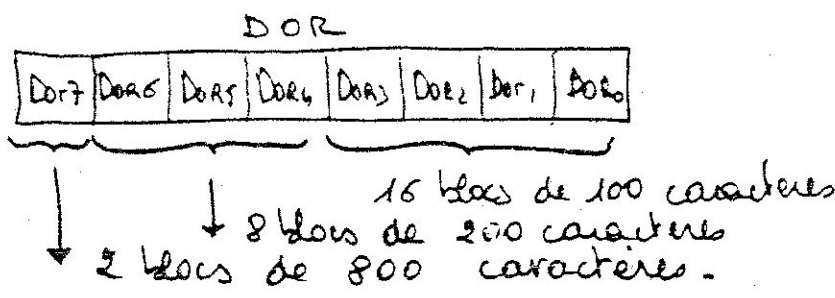 DOR
Dor7 DOR6 DOR5 DOR4 DOR3 DOR2 Dor1 DOR0
16 blocs de 100 caractères
8 blocs de 200 caractères
2 blocs de 800 caractères.